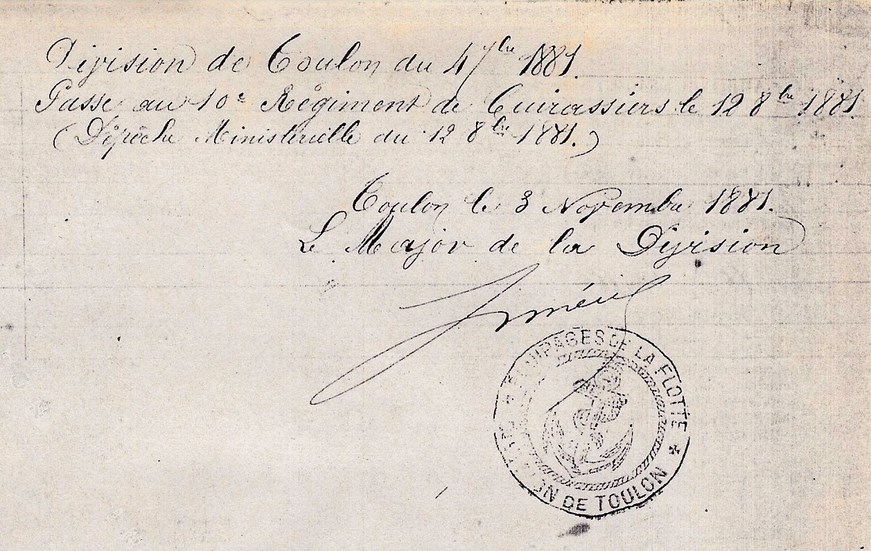 Division de Toulon du 4 7bre 1881.
Passé au 10e Régiment de Cuirassiers le 12 8bre 1881
(Dépêche Ministérielle du 12 8bre 1881.)
Toulon le 3 Novembre 1881.
Le Major de la Division
ÉQUIPAGES DE LA FLOTTE
ON DE TOULON